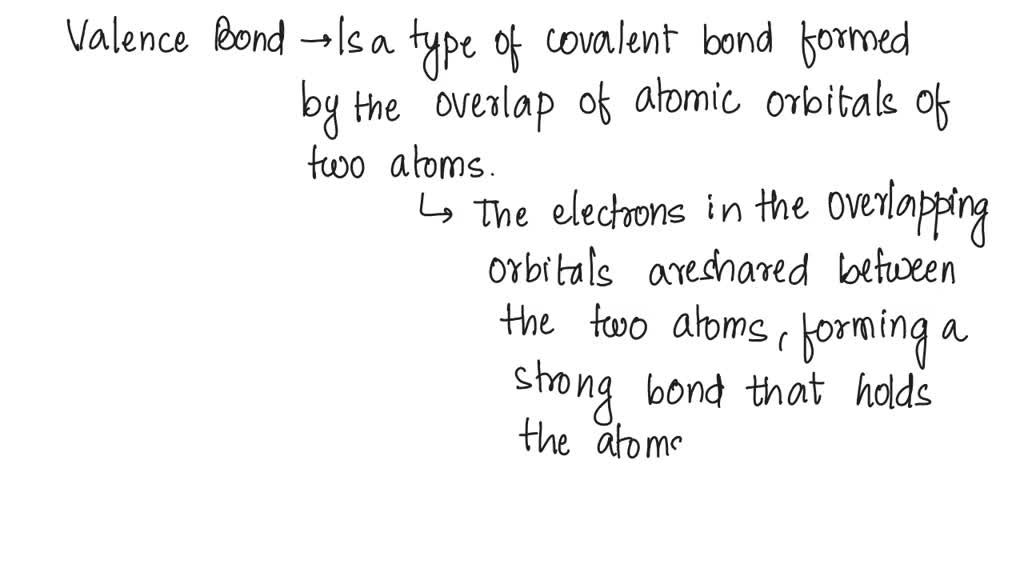 Valence Bond → Is a type of covalent bond formed
by the overlap of atomic orbitals of
two atoms.
↳ The electrons in the overlapping
orbitals areshared between
the two atoms, forming a
strong bond that holds
the atoms